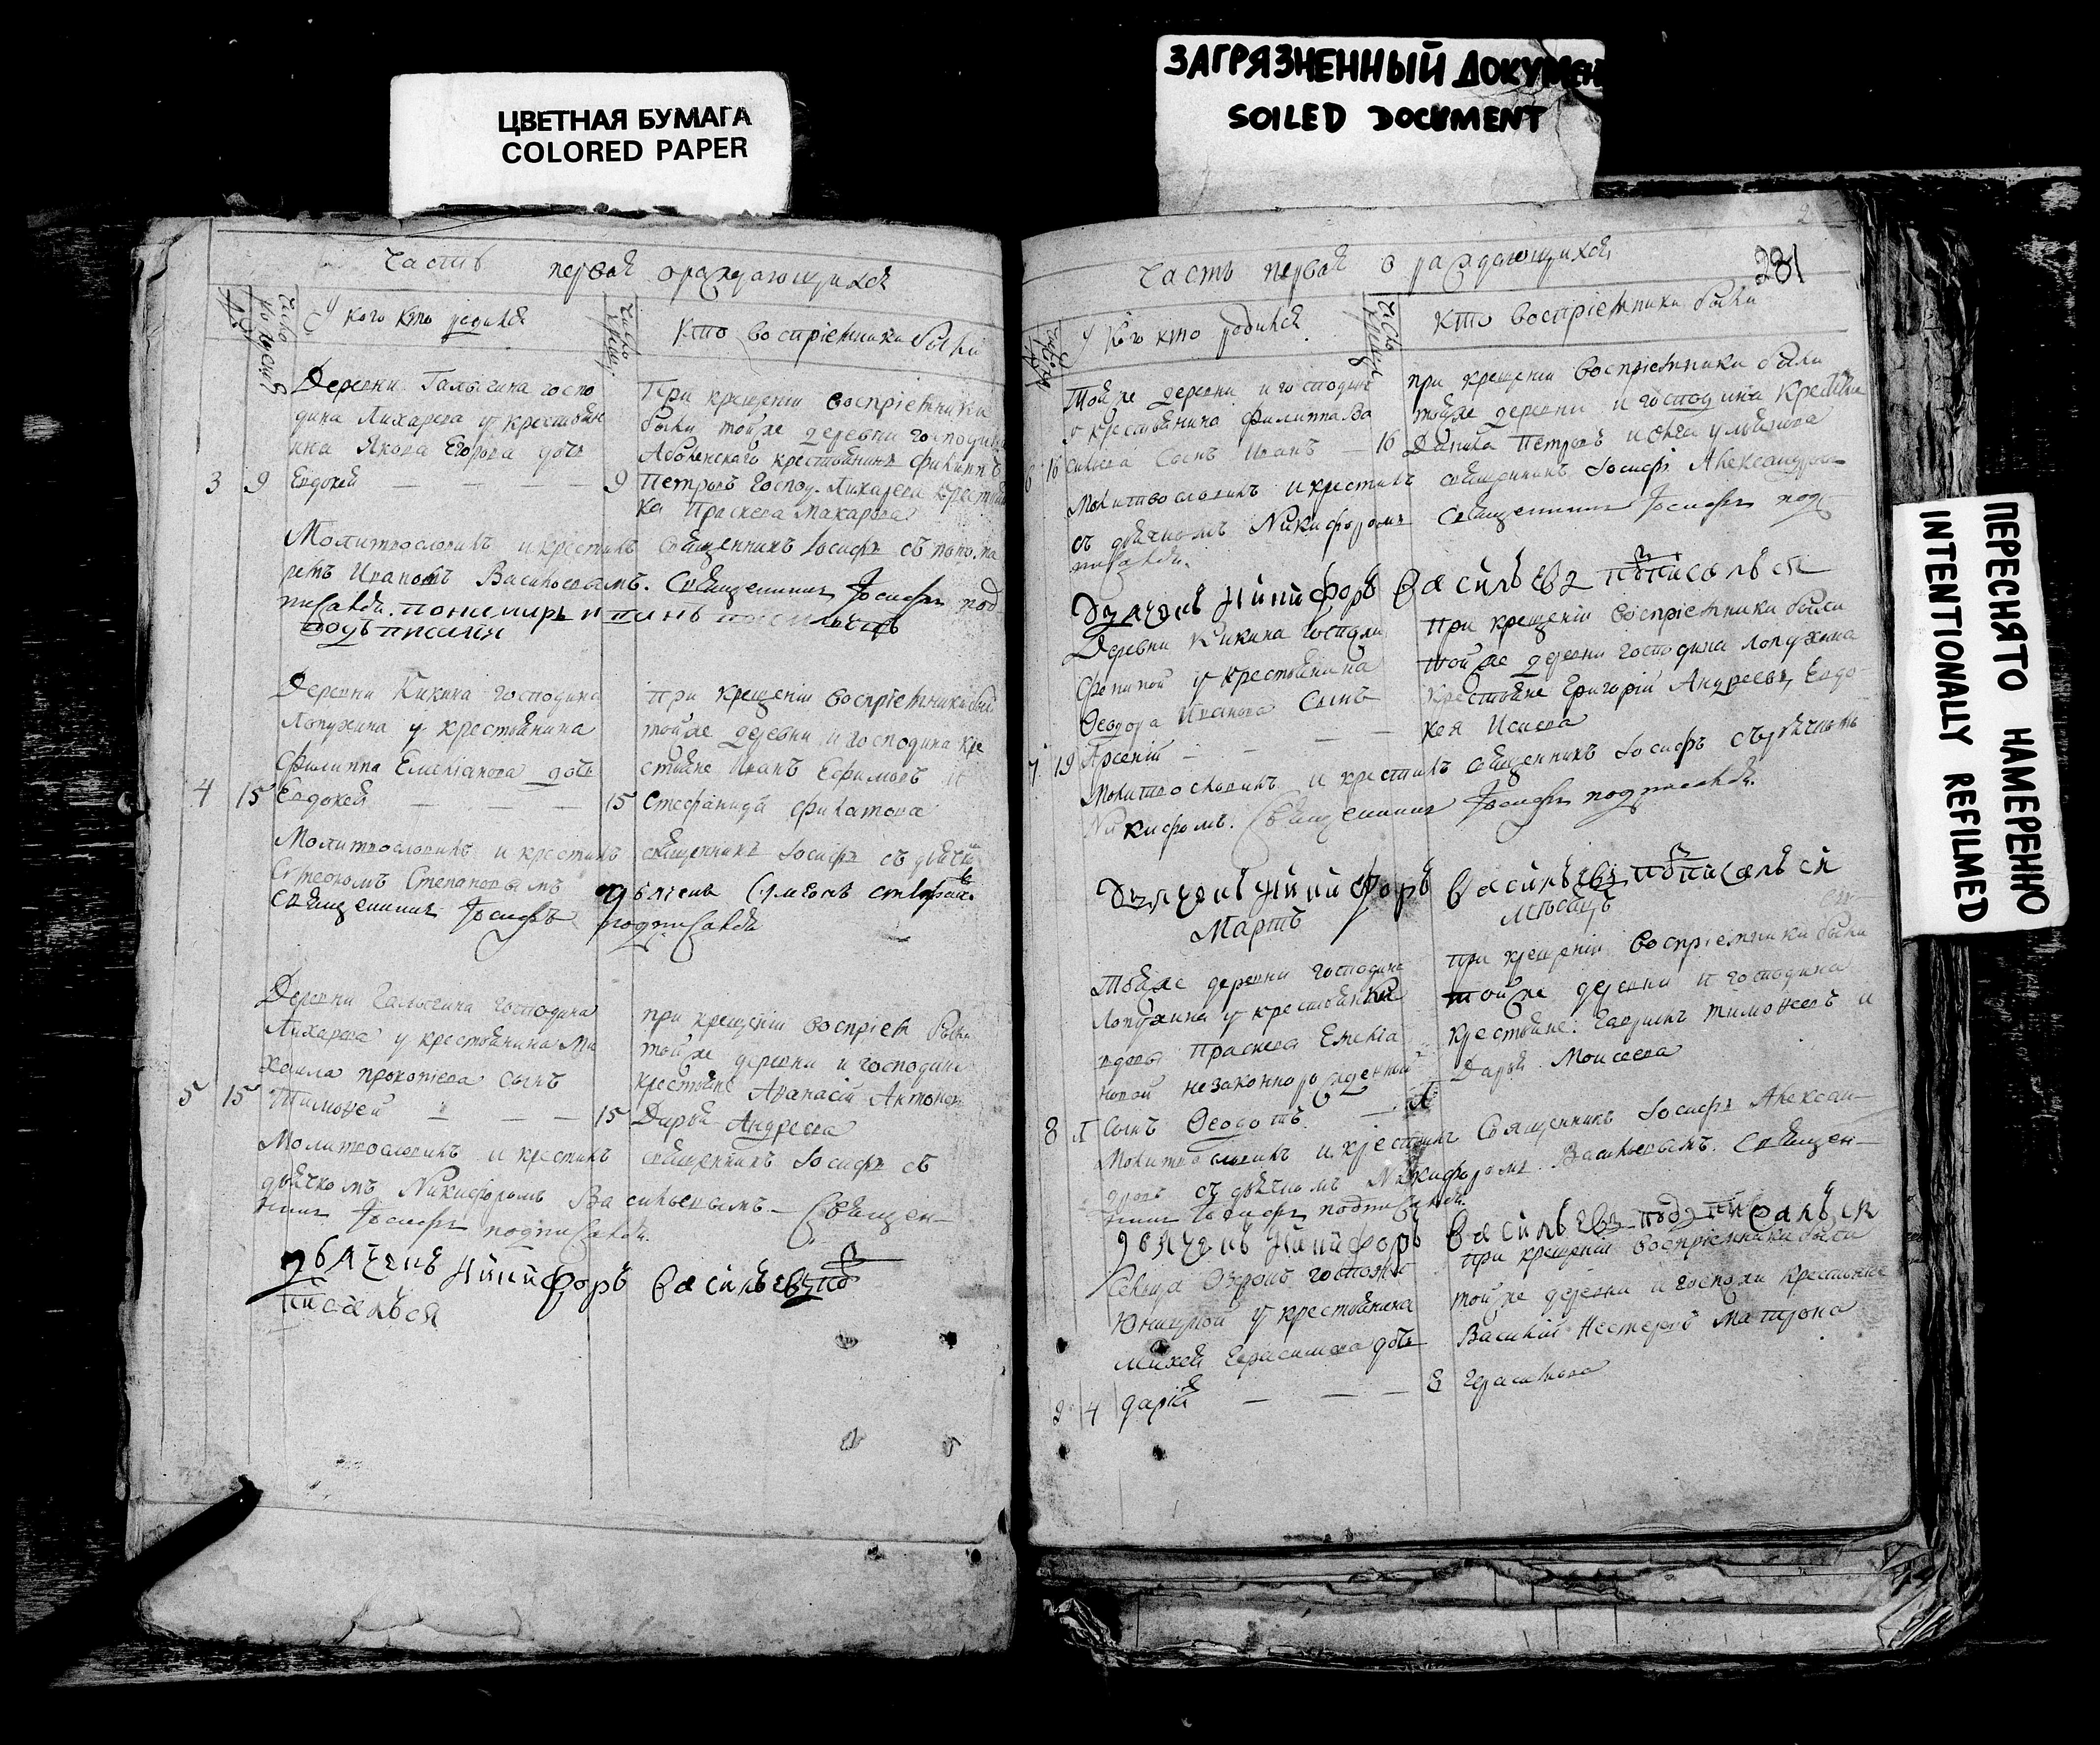 ЦВЕТНАЯ БУМАГА
COLORED PAPER
ЗАГРЯЗНЕННЫЙ ДОКУМЕН
SOILED DOCUMENT
ПЕРЕСНЯТО НАМЕРЕННО
INTENTIONALLY REFILMED
Часть первая о раждающихся
У кого кто родился
Кто воспріемники были
Деревни Галыгина госпо
дина Лихарева у крестьян
ина Якова Егорова дочь
3 9 Евдокея
При крещеніи воспріемники
были тойже деревни господина
крестьянинъ Филиппъ
9 Петровъ господ. Лихарева крестьян
ка Праскева Макарова
Молитвословилъ и крестилъ священникъ Іосифъ съ поно
ремъ Иваномъ Васильевымъ. Священникъ Іосифъ под
писался.
Деревни Кикина господина
Лопухина у крестьянина
Филиппа Емеліанова дочь
4 15 Евдокея
При крещеніи воспріемники были
тойже деревни и господина кре
стьяне Иванъ Ефимовъ и
15 Стефанида Филатова
Молитвословилъ и крестилъ священникъ Іосифъ съ дьячко
Симеономъ Степановымъ
Священникъ Іосифъ подписался
Деревни Галыгина господина
Лихарева у крестьянина Ми
хаила Прокопіева сынъ
5 15 Тимофей
при крещеніи воспріем были
тойже деревни и господина
крестьяне Афанасій Антонов
15 Дарья Андреева
Молитвословилъ и крестилъ священникъ Іосифъ съ
дьячкомъ Никифоромъ Васильевымъ. Священ-
никъ Іосифъ подписался.
дьячекъ Никифоръ Васильевъ по
писался
281
Часть первая о раждающихся
У кого кто родился
Кто воспріемники были
Тойже деревни и господина
у крестьянина Филиппа Са
6 16 сынъ Иванъ
при крещеніи воспріемники были
тойже деревни и господина крестьяне
16 Данила Петровъ и
Молитвословилъ и крестилъ священникъ Іосифъ Александровъ
съ дьячкомъ Никифоромъ Священникъ Іосифъ под
писался.
Дьячекъ Никифоръ Васильевъ пописался
Деревни Кикина госпожи
у крестьянина
Феодора Иванова сынъ
7 19 Арсеній
При крещеніи воспріемники были
тойже деревни господина Лопухина
крестьяне Григорій Андреевъ, Евдо
кея Исаева
Молитвословилъ и крестилъ священникъ Іосифъ съ дьячкомъ
Никифомъ. Священникъ Іосифъ подписался.
Дьячекъ Никифоръ Васильевъ пописался
Мартъ Мѣсяцъ
Тойже деревни господина
Лопухина у крестьянки
вдовы Праскевы Емелья
новой незаконнорожденный
8 сынъ Феодотъ
при крещеніи воспріемники были
тойже деревни и господина
крестьяне: Гаврилъ Тимофеевъ и
Дарья Моисеева
Молитвословилъ и крестилъ Священникъ Іосифъ Алексан-
дровъ съ дьячкомъ Никифоромъ Васильевымъ. Священ-
никъ Іосифъ подписался.
дьячекъ Никифоръ Васильевъ подписался
Сельца госпожи
у крестьянина
Михея Герасимова дочь
9 4 Дарія
при крещеніи воспріемники были
тойже деревни и госпожи крестьяне
Василій Нестеровъ Матрона
8 Герасимова